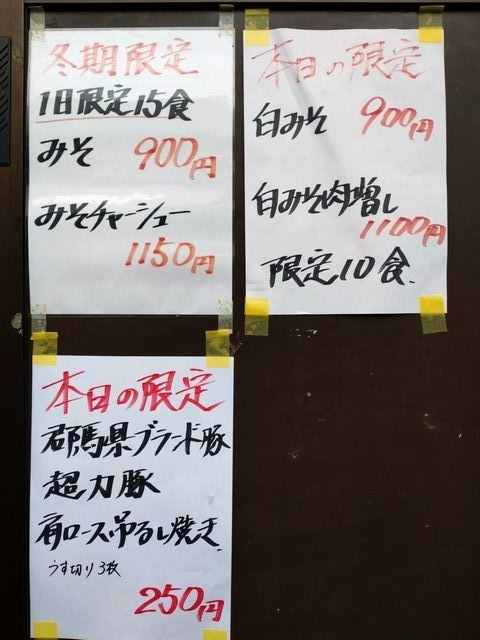 冬期限定
1日限定15食
みそ 900円
みそチャーシュー
1150円
本日の限定
白みそ 900円
白みそ肉増し
1100円
限定10食.
本日の限定
群馬県ブランド豚
超力豚
肩ロース吊るし焼き
うす切り3枚
250円